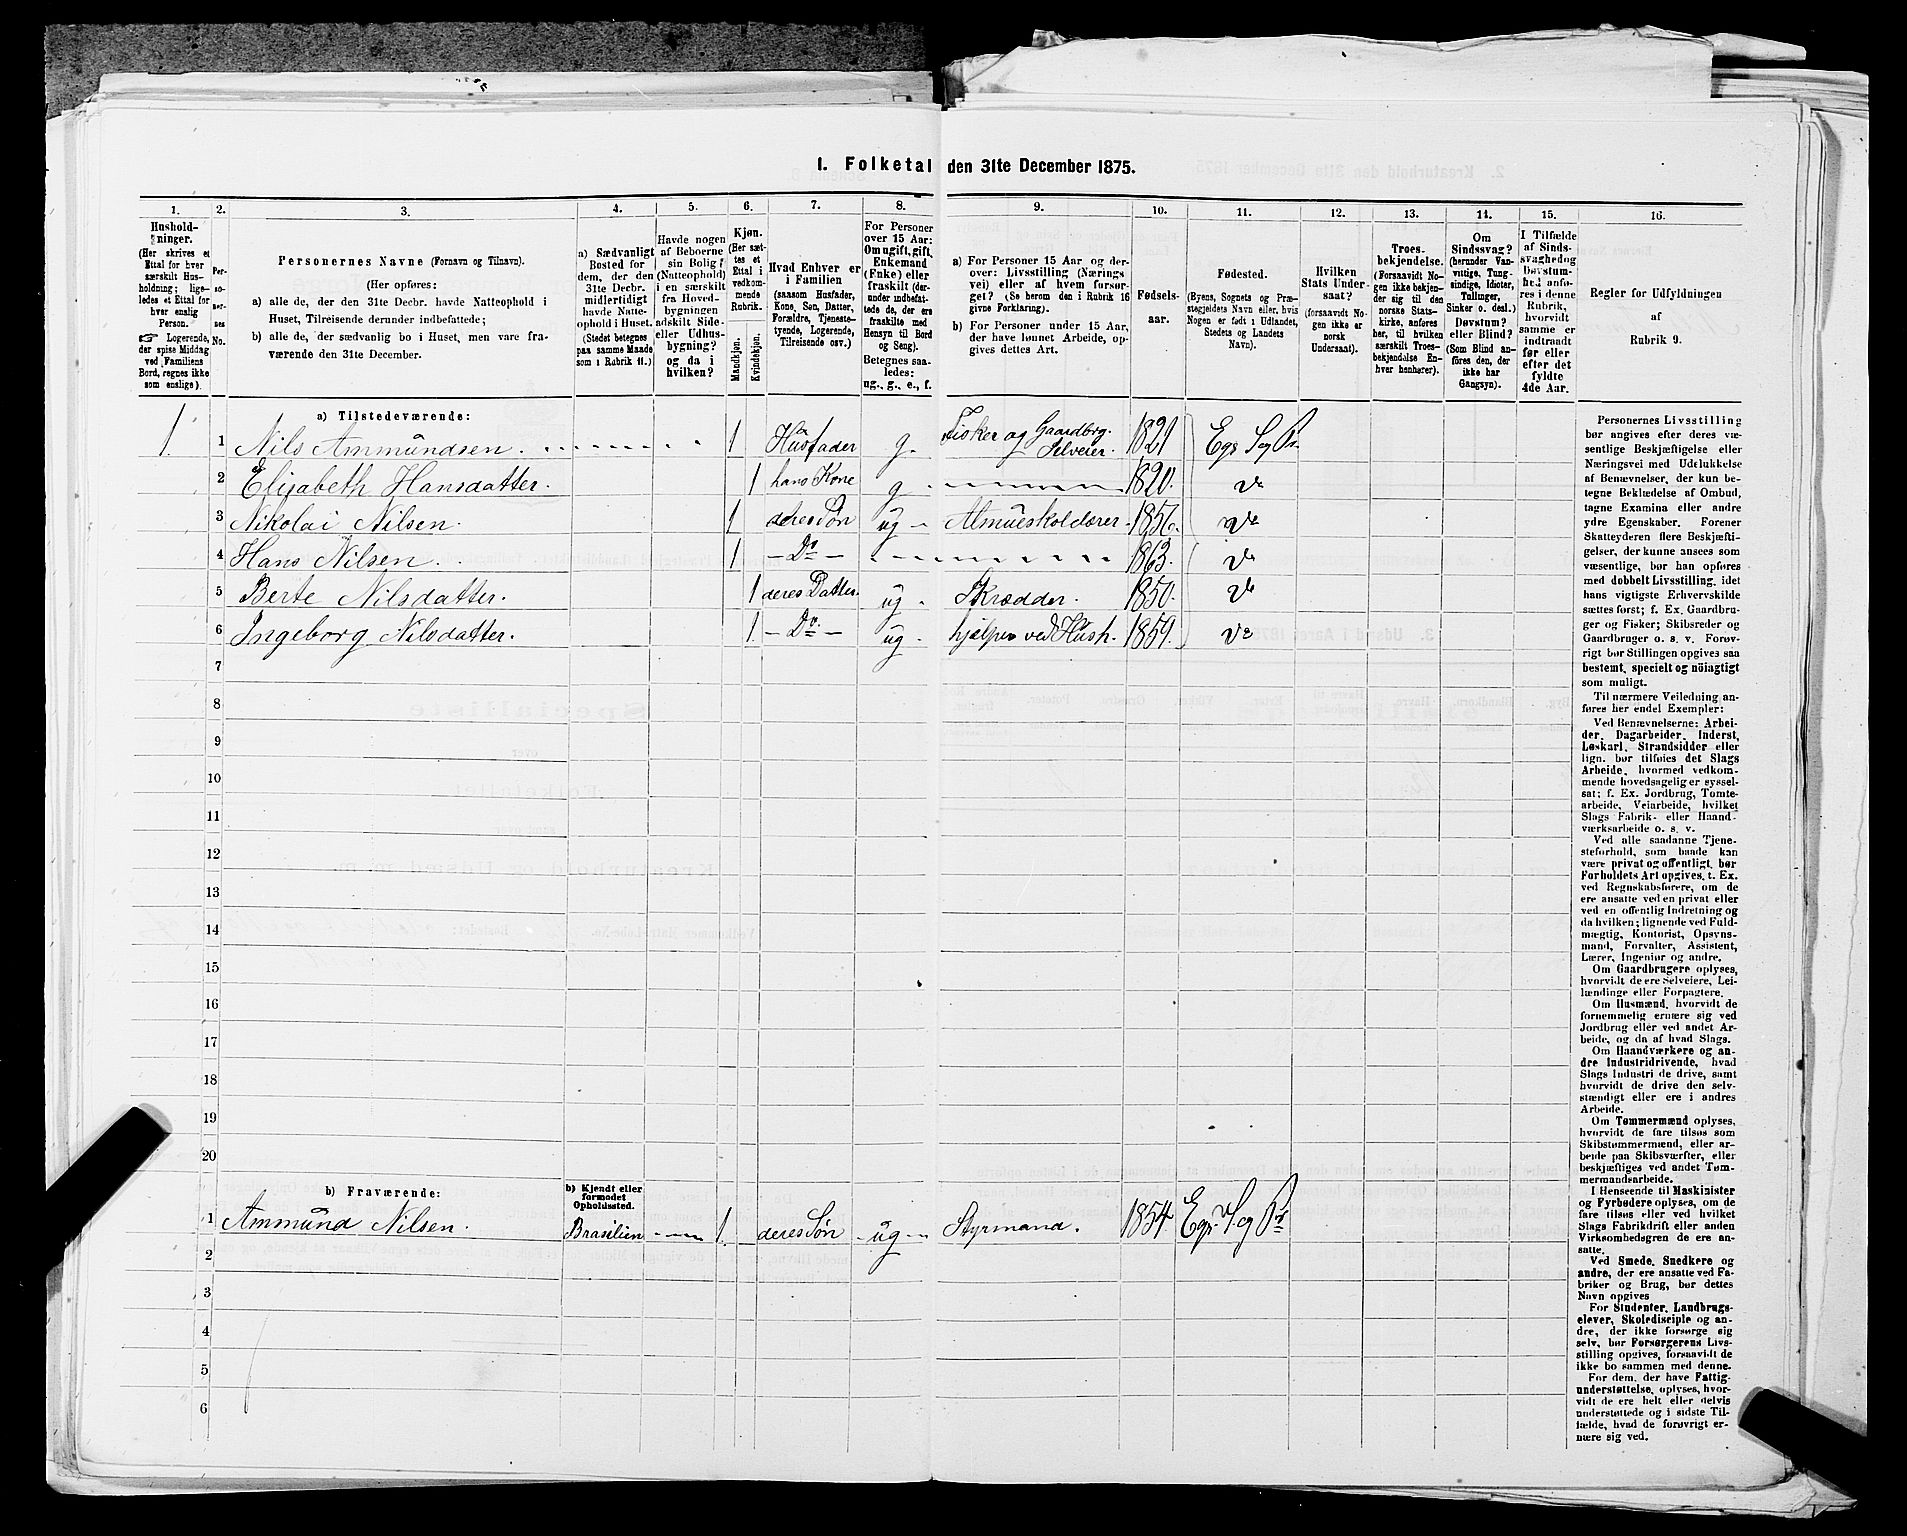 1. Folketal den 31te December 1875.
1.
2.
3.
4.
5.
6.
7.
8.
9.
10.
11.
12.
13.
14.
15.
16.
Hushold-
ninger.
(Her skrives et
Ettal for hver
særskilt Hus-
holdning; lige-
ledes et Ettal for
hver enslig
Person.
☞ Logerende,
der spise Middag
ved Familiens
Bord, regnes ikke
som enslige).
Per-
so-
ner-
nes
No.
Personernes Navne (Fornavn og Tilnavn).
(Her opføres:
a) alle de, der den 31te Decbr. havde Natteophold i
Huset, Tilreisende derunder indbefattede;
b) alle de, der sædvanlig bo i Huset, men vare fra-
værende den 31te December.
a) Sædvanligt
Bosted for
dem, der den
31te Decbr.
midlertidigt
havde Natte-
ophold i Huset.
(Stedet betegnes
paa samme Maade
som i Rubrik 11.)
Havde nogen
af Beboerne
sin Bolig
(Natteophold)
i en særskilt
fra Hoved-
bygningen
adskilt Side-
eller Udhus-
bygning?
og da i
hvilken?
Kjøn.
(Her sæt-
tes et
Ettal i
vedkom-
mende
Rubrik.
Mandkjøn.
Kvindekjøn.
Hvad Enhver er
i Familien
(saasom Husfader,
Kone, Søn, Datter,
Forældre, Tjeneste-
tyende, Logerende,
Tilreisende osv.)
For Personer
over 15 Aar:
Om ugift, gift,
Enkemand
(Enke) eller
fraskilt (der-
under indbefat-
tede de, der ere
fraskilte med
Hensyn til Bord
og Seng).
Betegnes saa-
ledes:
ug., g., e., f.
a) For Personer 15 Aar og der-
over: Livsstilling (Nærings
vei) eller af hvem forsør-
get? (Se herom den i Rubrik 16
givne Forklaring).
b) For Personer under 15 Aar,
der have lønnet Arbeide, op-
gives dettes Art.
Fødsels-
aar.
Fødested.
(Byens, Sognets og Præ-
stegjeldets Navn eller, hvis
Nogen er født i Udlandet,
Stedets og Landets
Navn).
Hvilken
Stats Under-
saat?
(forsaavidt No-
gen ikke er
norsk
Undersaat).
Troes-
bekjendelse.
(Forsaavidt No-
gen ikke bekjen-
der sig til den
norske Stats-
kirke, anføres
her, til hvilken
særskilt Troes-
bekjendelse En-
hver henhører).
Om
Sindssvag?
(herunder Van-
vittige, Tung-
sindige, Idioter,
Tullinger,
Sinker o. desl.)
Døvstum?
eller Blind?
(Som Blind an-
føres den, der
ikke har
Gangsyn).
I Tilfælde
af Sinds-
svaghed og
Døvstum-
hed anfø-
res i denne
Rubrik,
hvorvidt
samme er
indtraadt
før eller
efter det
fyldte
4de Aar.
Regler for Udfyldningen
af
Rubrik 9.
a) Tilstedeværende:
1 1 Nils Ammundsen. 1 Husfader g. Fisker og Gaardbrg. Selveier. 1821 Egs S og Pr.
2 Elisabeth Hansdatter. 1 hans Kone g 1820. do
3 Nikolai Nilsen. 1 deres Søn ug Almueskolelærer 1856. do
4 Hans Nilsen. 1 Do 1863. do
5 Berte Nilsdatter. 1 deres Datter ug Skrædder. 1850. do
6 Ingeborg Nilsdatter. 1 Do ug hjælper ved Hush. 1859. do
7
8
9
10
11
12
13
14
15
16
17
18
19
20
b) Fraværende:
b) Kjendt eller
formodet
Opholdssted.
1 Ammund Nilsen. Brasilien 1. deres Søn ug Styrmand. 1854 Egs. S. og Pr
2
3
4
5
6
Personernes Livsstilling
bør angives efter deres væ-
sentlige Beskjæftigelse eller
Næringsvei med Udelukkelse
af Benævnelser, der kun be-
tegne Beklædelse af Ombud,
tagne Examina eller andre
ydre Egenskaber. Forener
Skatteyderen flere Beskjæfti-
gelser, der kunne ansees som
væsentlige, bør han opføres
med dobbelt Livsstilling, idet
hans vigtigste Erhvervskilde
sættes først; f. Ex. Gaardbru-
ger og Fisker; Skibsreder og
Gaardbruger o. s. v. Forøv-
rigt bør Stillingen opgives saa
bestemt, specielt og nöiagtigt
som muligt.
Til nærmere Veiledning an-
føres her endel Exempler:
Ved Benævnelserne: Arbei-
der, Dagarbeider, Inderst,
Løskarl, Strandsidder eller
lign. bør tilføies det Slags
Arbeide, hvormed vedkom-
mende hovedsagelig er syssel-
sat; f. Ex. Jordbrug, Tomte-
arbeide, Veiarbeide, hvilket
Slags Fabrik- eller Haand-
værksarbeide o. s. v.
Ved alle saadanne Tjene-
steforhold, som baade kan
være privat og offentligt, bør
Forholdets Art opgives, t. Ex.
ved Regnskabsførere, om de
ere ansatte ved en privat eller
ved en offentlig Indretning og
da hvilken; lignende ved Fuld-
mægtig, Kontorist, Opsyns-
mand, Forvalter, Assistent,
Lærer, Ingeniør og andre.
Om Gaardbrugere oplyses,
hvorvidt de ere Selveiere, Lei-
lændinge eller Forpagtere.
Om Husmænd, hvorvidt de
fornemmelig ernære sig ved
Jordbrug eller ved andet Ar-
beide, og da af hvad Slags.
Om Haandværkere og an-
dre Industridrivende, hvad
Slags Industri de drive, samt
hvorvidt de drive den selv-
stændigt eller ere i andres
Arbeide.
Om Tømmermænd oplyses,
hvorvidt de fare tilsøs som
Skibstømmermænd, eller ar-
beide paa Skibsværfter, eller
beskjæftiges ved andet Tøm-
mermandsarbeide.
I Henseende til Maskinister
og Fyrbødere oplyses, om de
fare tilsøs eller ved hvilket
Slags Fabrikdrift eller anden
Virksomhedsgren de ere an-
satte.
Ved Smede, Snedkere og
andre, der ere ansatte ved Fa-
briker og Brug, bør dettes
Navn opgives
For Studenter, Landbrugs-
elever, Skoledisciple og an-
dre, der ikke forsørge sig
selv, bør Forsørgerens Livs-
stilling opgives, forsaavidt de
ikke bo sammen med denne.
For dem, der have Fattig-
understøttelse, oplyses, hvor-
vidt de ere helt eller delvis
understøttede og i sidste Til-
fælde, hvad de forøvrigt er-
nære sig ved.